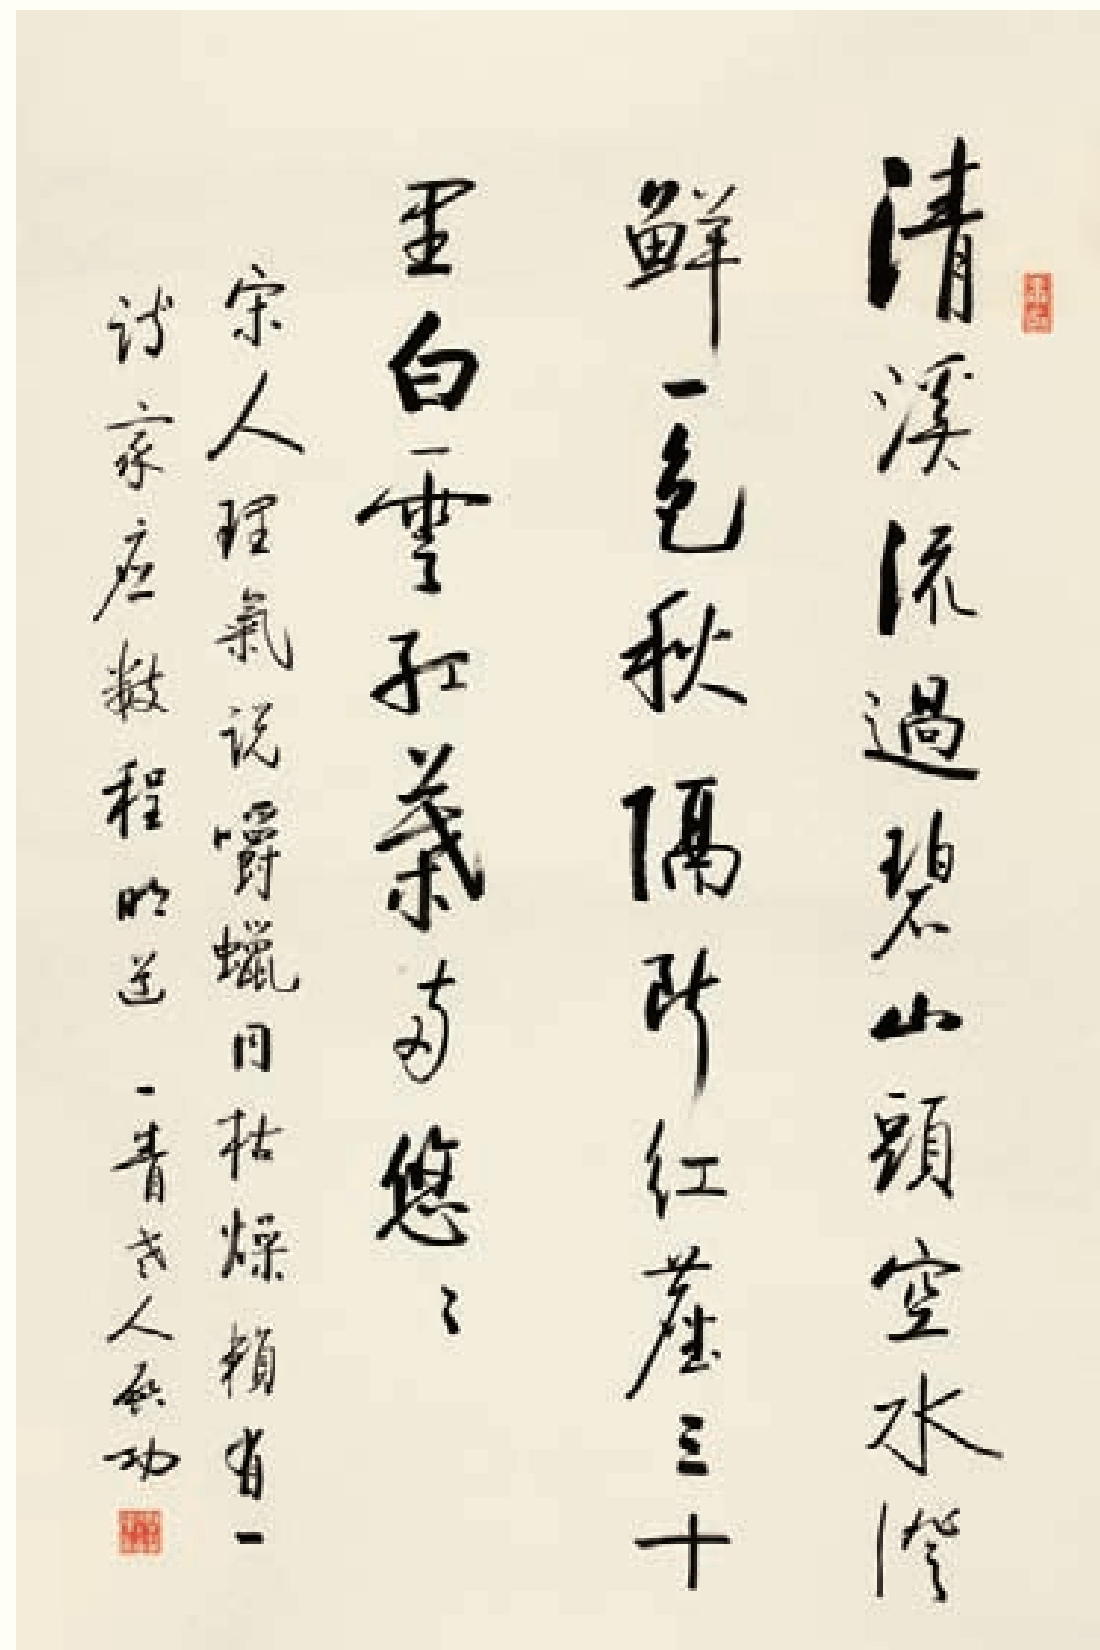 清溪流過碧山頭空水澄
鮮一色秋隔断紅塵三十
里白雲紅葉兩悠々
宋人理氣说嚼蠟同枯燥賴有一
诗家应数程明道 一青老人启功